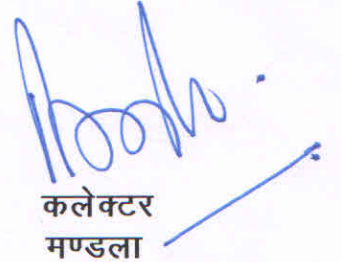 कलेक्टर
मण्डला